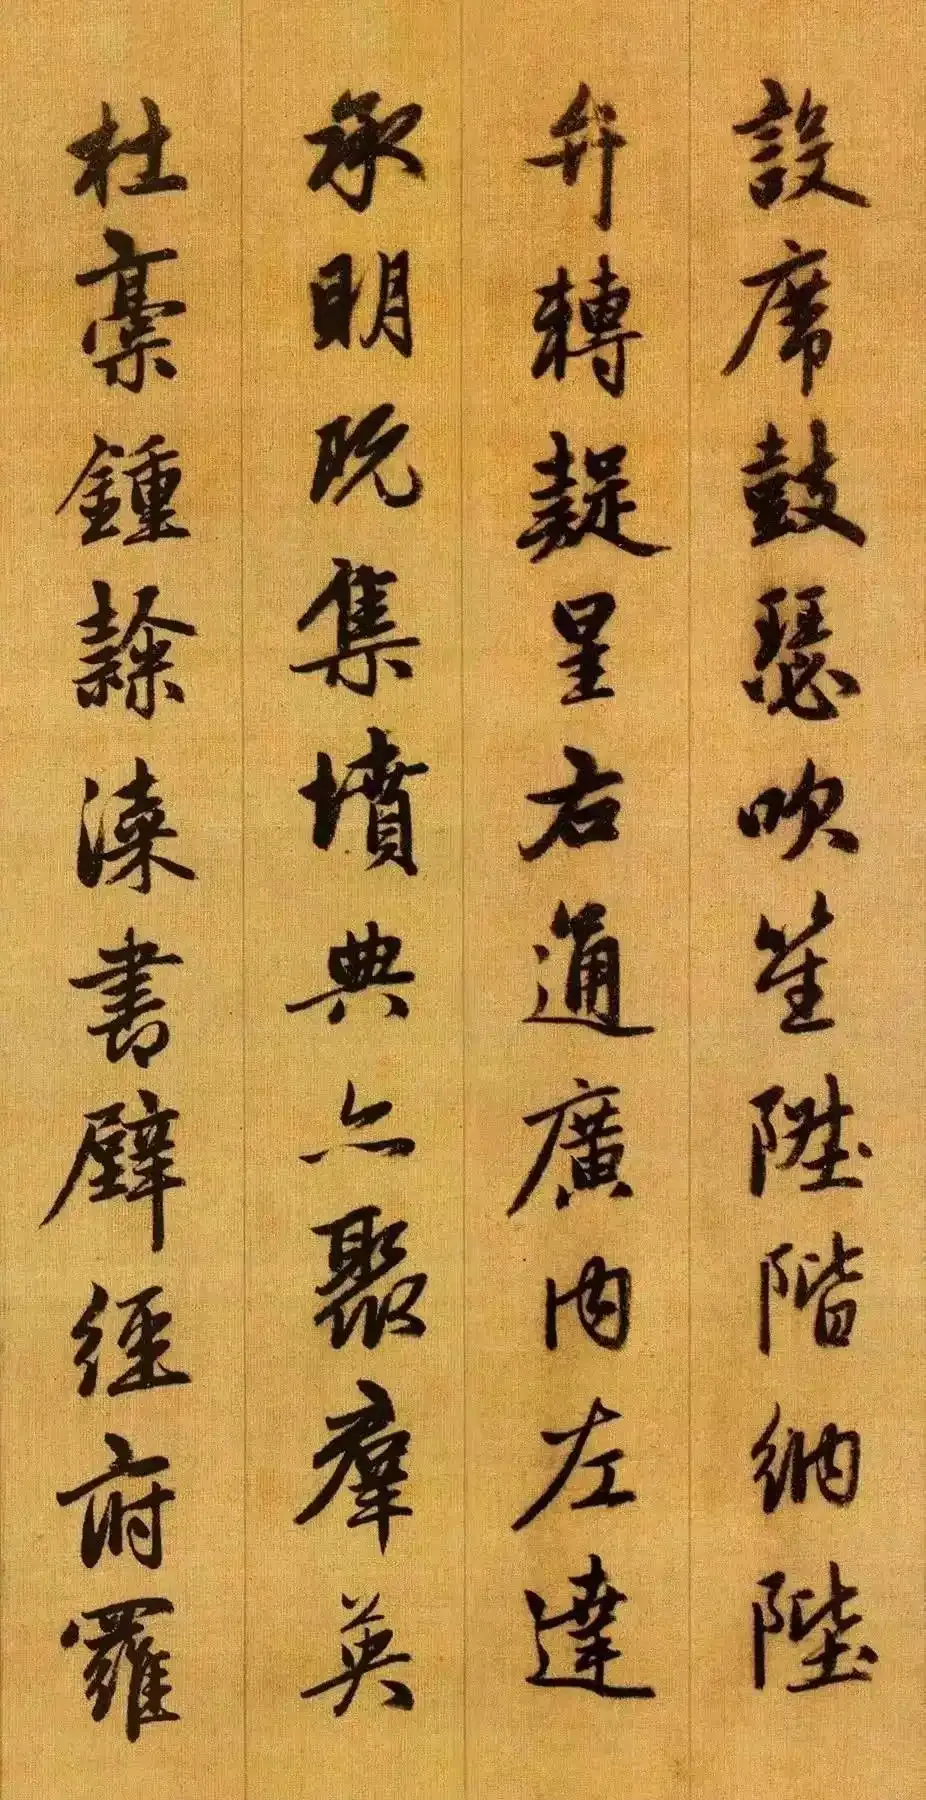 設席鼓瑟吹笙陞階納陛
弁轉疑星右通廣內左達
承明既集墳典亦聚群英
杜稾鍾隸漆書壁經府羅